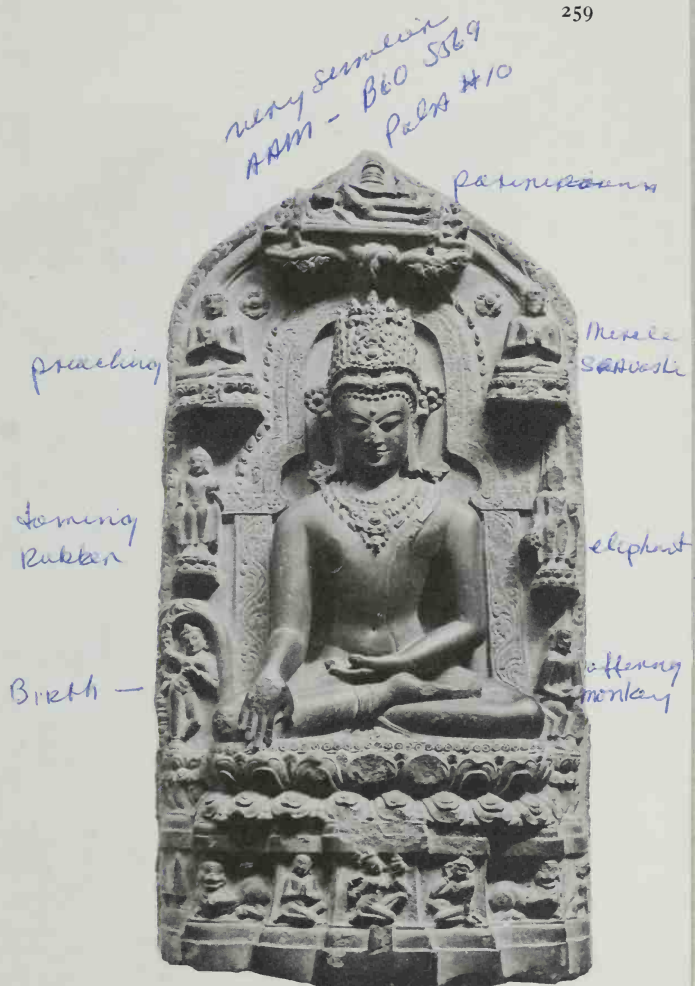 259
very similar
AAM - B60 S569
Pala #10
parinirvana
preaching
Miracle
SRAVASTI
taming
Rubben
elephant
Birth -
offering
monkey